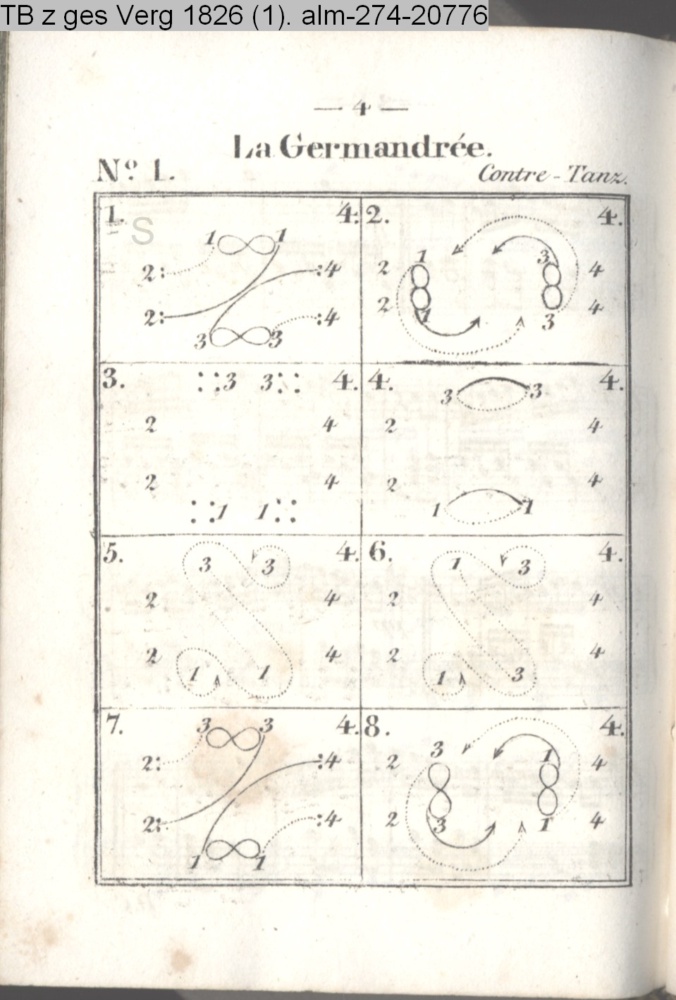 TB z ges Verg 1826 (1). alm-274-20776
— 4 —
La Germandrée.
Nº. 1.
Contre-Tanz.
1. 4.
S
1 1
2: :4
2: :4
3 3
2. 4.
1 3
2 4
2 4
1 3
3. 4.
3 3
2 4
2 4
1 1
4. 4.
3 3
2 4
2 4
1 1
5. 4.
3 3
2 4
2 4
1 1
6. 4.
1 3
2 4
2 4
1 3
7. 4.
3 3
2: :4
2: :4
1 1
8. 4.
3 1
2 4
2 4
3 1